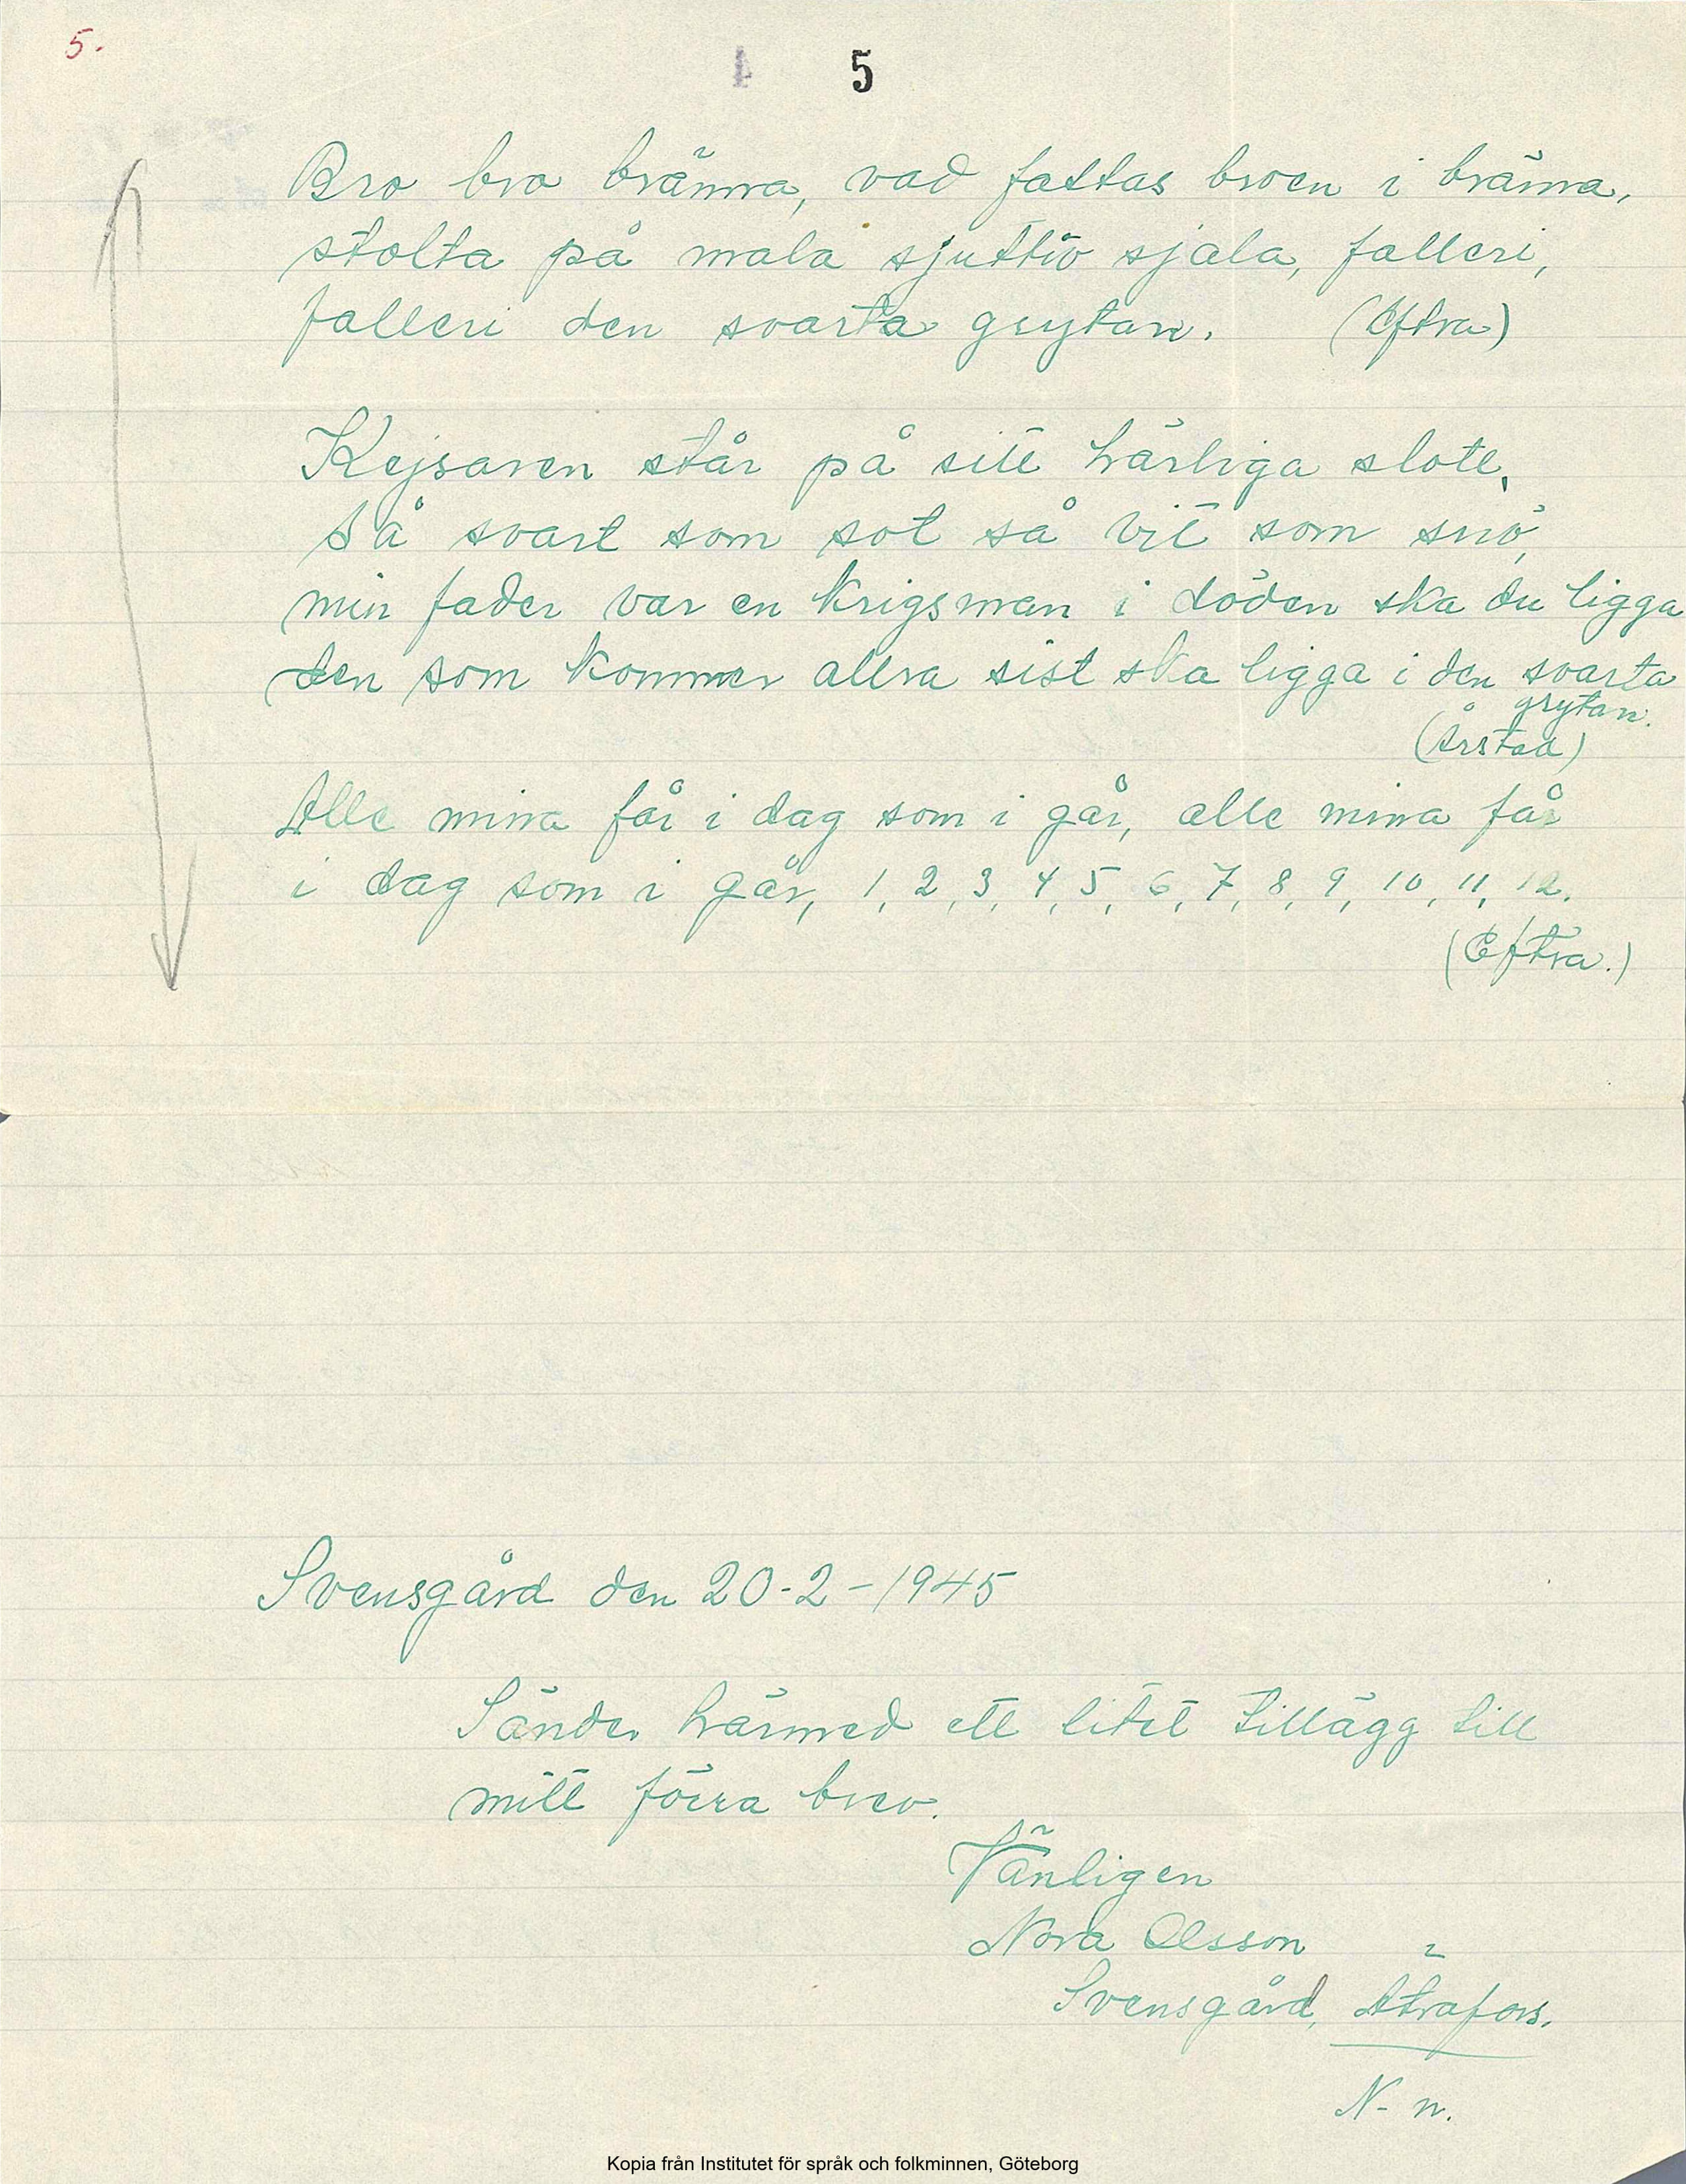 5.
5
Bro bro bränna, vad fattas broen i bränna,
stolta på mala sjuttio sjala, falleri,
falleri den svarta grytan. (Eftra)
Kejsaren står på sitt härliga slott,
Så svart som sot så vit som snö,
min fader var en krigsman i döden ska du ligga
den som kommer allra sist ska ligga i den svarta
grytan.
(Årstad)
Alle mina får i dag som i går, alle mina får
i dag som i går, 1, 2, 3, 4, 5, 6, 7, 8, 9, 10, 11, 12.
(Eftra.)
Svensgård den 20-2-1945
Sänder härmed ett litet tillägg till
mitt förra brev.
Vänligen
Nora Olsson
Svensgård, Ätrafors.
N- n.
Kopia från Institutet för språk och folkminnen, Göteborg